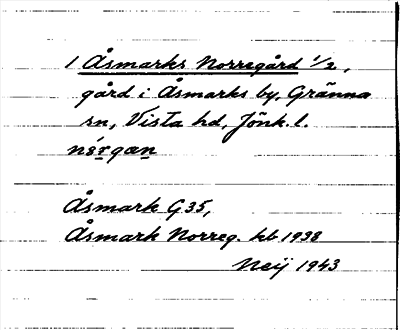 1 Åsmarks Norregård 1/2,
gård i Åsmarks by, Gränna
sn, Vista hd, Jönk. l.
nórgan
Åsmark G35,
Åsmark Norreg. kb 1938
Neij 1943